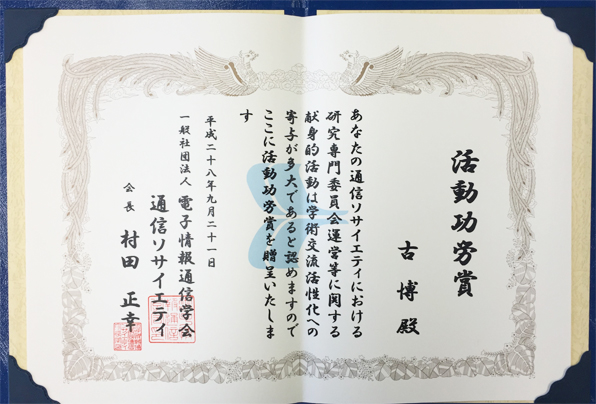 活動功労賞
古 博 殿
あなたの通信ソサイエティにおける
研究専門委員会運営等に関する
献身的活動は学術交流活性化への
寄与が多大であると認めますので
ここに活動功労賞を贈呈いたしま
す
平成二十八年九月二十一日
一般社団法人 電子情報通信学会
通信ソサイエティ
会長 村田 正幸